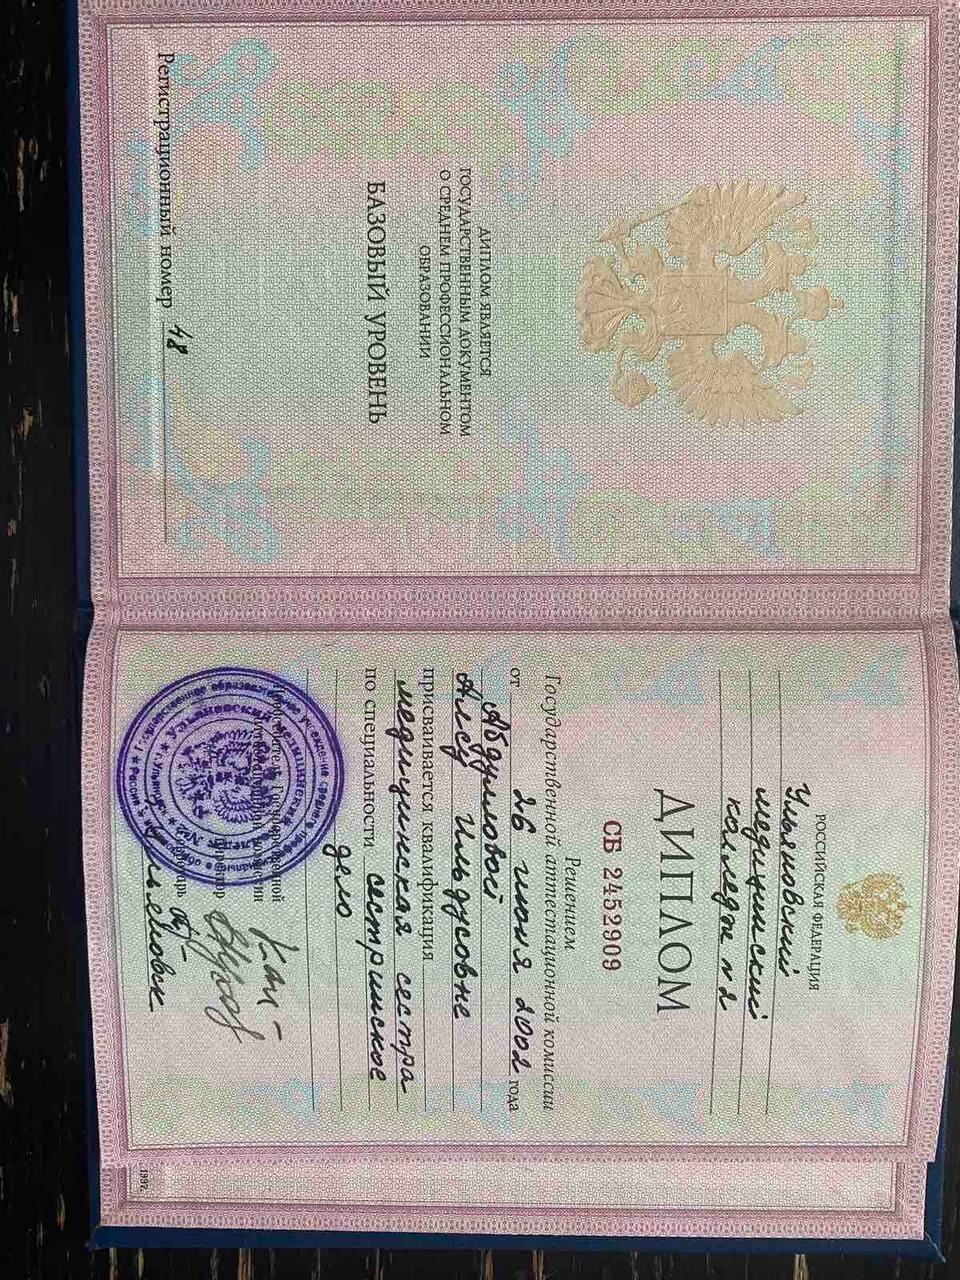 ДИПЛОМ ЯВЛЯЕТСЯ
ГОСУДАРСТВЕННЫМ ДОКУМЕНТОМ
О СРЕДНЕМ ПРОФЕССИОНАЛЬНОМ
ОБРАЗОВАНИИ
БАЗОВЫЙ УРОВЕНЬ
Регистрационный номер 48
РОССИЙСКАЯ ФЕДЕРАЦИЯ
Ульяновский
медицинский
колледж n2
ДИПЛОМ
СБ 2452909
Решением
Государственной аттестационной комиссии
от 26 июня 2002 года
Абдулловой
Алсу Ильдусовне
присваивается квалификация
медицинская сестра
по специальности сестринское
дело
Председатель Государственной
аттестационной комиссии
Директор
Секретарь
1997.